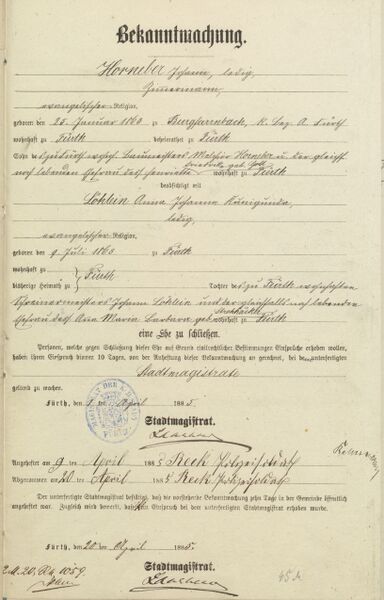 Bekanntmachung.
Horneber Johann, ledig,
Zimmermann,
evangelischer Religion,
geboren am 25. Januar 1860 zu Burgfarrnbach, K. Bez. A. Fürth
wohnhaft zu Fürth beheimathet zu Fürth
Sohn des zu Fürth wohnh. Baumeisters Melchior Horneber u. der gleichf.
noch lebenden Ehefrau desselben wohnhaft zu Fürth
beabsichtigt mit
Löhlein Anna Johanna Kunigunda,
ledig,
evangelischer Religion,
geboren den 9 Juli 1863 zu Fürth
wohnhaft zu
bisherige Heimath zu } Fürth Tochter des zu Fürth wohnhaften
Schreinermeisters Johann Löhlein und der gleichfalls noch lebenden
Ehefrau Anna Maria Barbara geb. wohnhaft zu Fürth
eine Ehe zu schließen.
Personen, welche gegen Schließung dieser Ehe auf Grund civilrechtlicher Bestimmungen Einsprüche erheben wollen,
haben ihren Einspruch binnen 10 Tagen, von der Anheftung dieser Bekanntmachung an gerechnet, bei dem unterfertigten
Stadtmagistrate
geltend zu machen.
Fürth, den April 1885
Stadtmagistrat.
Angeheftet am 9 ten April 1885 Reck Polizeisoldat
Abgenommen am 20 ten April 1885 Reck Polizeisoldat
Der unterfertigte Stadtmagistrat bestätigt, daß die vorstehende Bekanntmachung zehn Tage in der Gemeinde öffentlich
angeheftet war. Zugleich wird bemerkt, daß kein Einspruch bei dem unterfertigten Stadtmagistrat erhoben wurde.
Fürth, den 20 ten April 1885.
Stadtmagistrat.